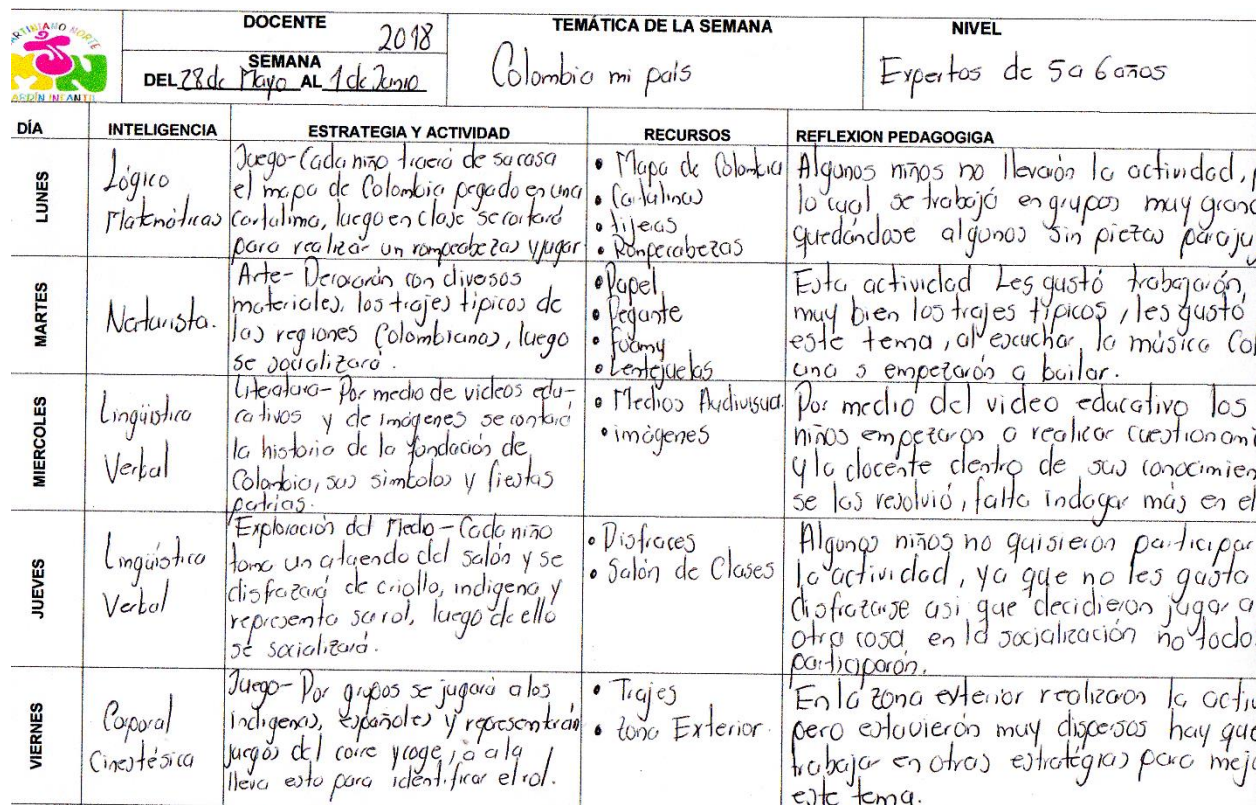 MARTINIANO NORTE
JARDÍN INFANTIL
DOCENTE
2018
SEMANA
DEL 28 de Mayo AL 1 de Junio
TEMÁTICA DE LA SEMANA
Colombia mi país
NIVEL
Expertos de 5 a 6 años
DÍA
INTELIGENCIA
ESTRATEGIA Y ACTIVIDAD
RECURSOS
REFLEXION PEDAGOGIGA
LUNES
Lógico
Matemáticas
Juego-Cada niño traerá de su casa
el mapa de Colombia pegado en una
cartulima, luego en clase se cortará
para realizar un rompecabezas y jugar
• Mapa de Colombia
• Cartulinas
• tijeras
• Ronpecabezas
Algunos niños no llevarón la actividad, p
lo cual se trabajó en grupos muy grand
quedándose algunos sin piezas para jug
MARTES
Naturista.
Arte- Decorarán con diversos
materiales, los trajes típicos de
las regiones Colombianas, luego
se socializará.
• Papel
• Pegante
• foamy
• Lentejuelas
Esta actividad Les gustó trabajarón,
muy bien los trajes típicos, les gustó
este tema, al escuchar la música Col
ana s empezarón a bailar.
MIERCOLES
Lingüistica
Verbal
Literatura- Por medio de videos edu-
cativos y de imágenes se contará
la historia de la fundación de
Colombia, sus simbolos y fiestas
patrias.
• Medios Audivisua.
• imágenes
Por medio del video educativo los
niños empezaron a realizar cuestionami
y la docente dentro de sus conocimien
se los resolvió, falta indagar más en el
JUEVES
Lingüistica
Verbal
Exploración del Medio - Cada niño
toma un atuendo del salón y se
disfrazará de criollo, indigena y
representa su rol, luego de ello
se socializará.
• Disfraces
• Salón de Clases
Algunos niños no quisieron participar
la actividad, ya que no les gusta
disfrazarse asi que decidieron jugar a
otra cosa, en la socialización no todo
participarón.
VIERNES
Corporal
Cinestésica
Juego- Por grupos se jugará a los
indigenas, españoles y representarán
juegos del corre y coge, o a la
lleva esto para identificar el rol.
• Trajes
• zona Exterior.
En la zona exterior realizaron la activ
pero estuvierón muy dispersos hay que
trabajar en otras estratégias para mejo
este tema.